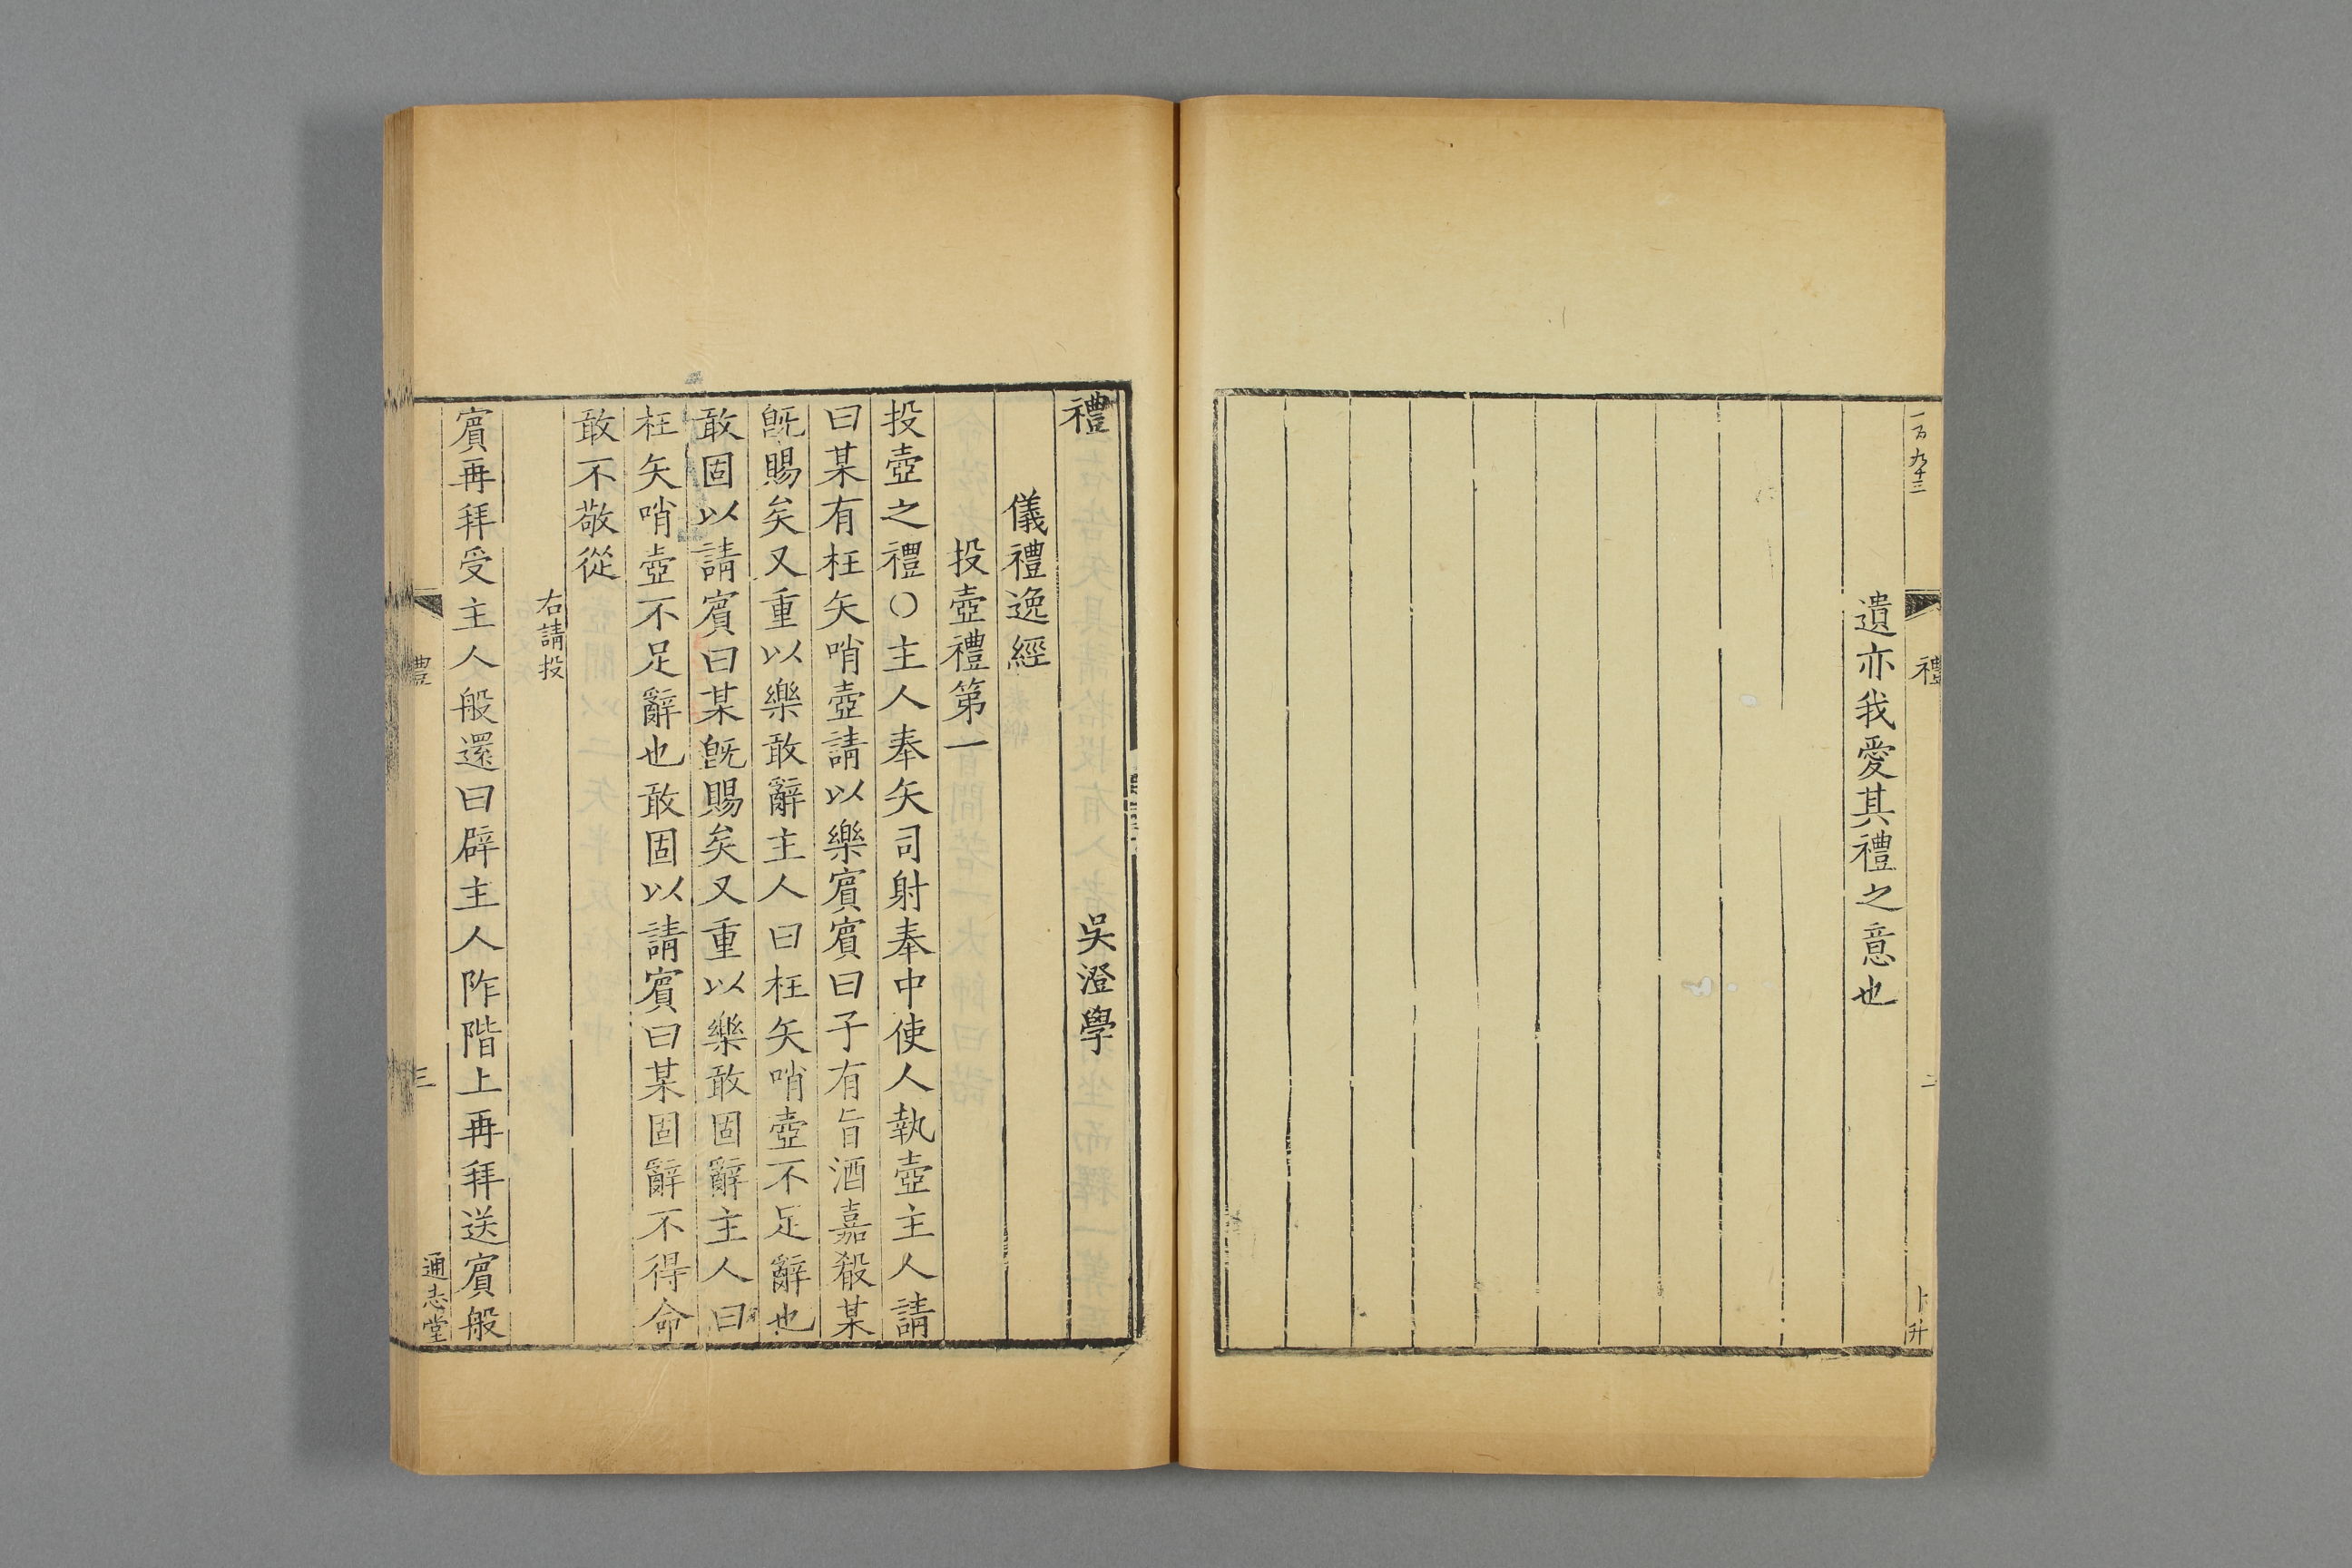 一百九十三
禮
二
卜升
遺亦我愛其禮之意也
禮
吳澄學
儀禮逸經
投壺禮第一
投壺之禮〇主人奉矢司射奉中使人執壺主人請
曰某有枉矢哨壺請以樂賔賔曰子有旨酒嘉殽某
旣賜矣又重以樂敢辭主人曰枉矢哨壺不足辭也
敢固以請賔曰某旣賜矣又重以樂敢固辭主人曰
枉矢哨壺不足辭也敢固以請賔曰某固辭不得命
敢不敬從
右請投
賔再拜受主人般還曰辟主人阼階上再拜送賔般
禮
三
通志堂